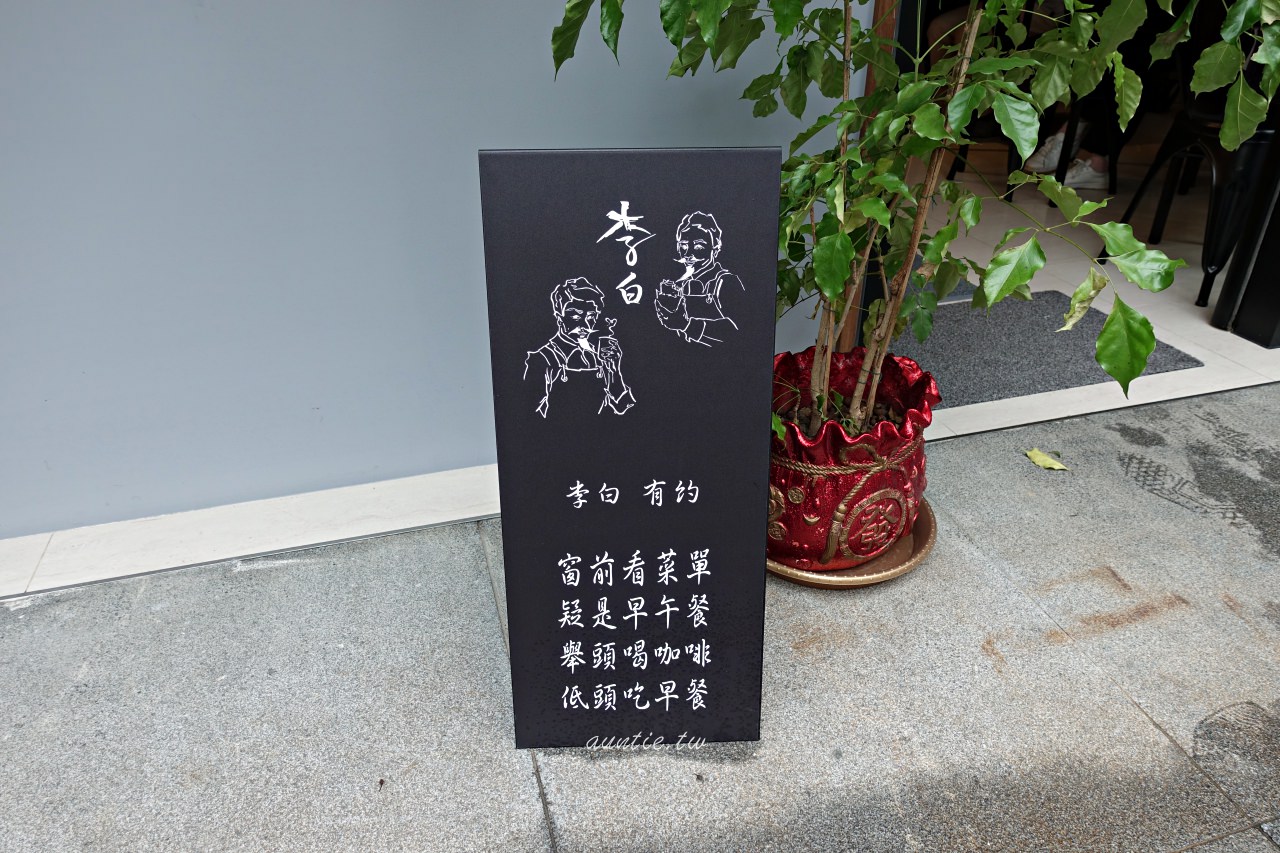 李白
李白 有約
窗前看菜單
疑是早午餐
舉頭喝咖啡
低頭吃早餐
auntie.tw